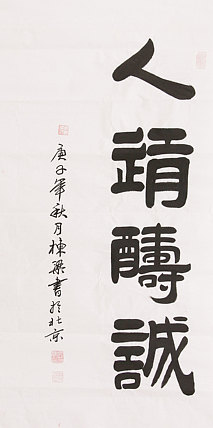 人靖醻誠
庚子年秋月棟梁書於北京